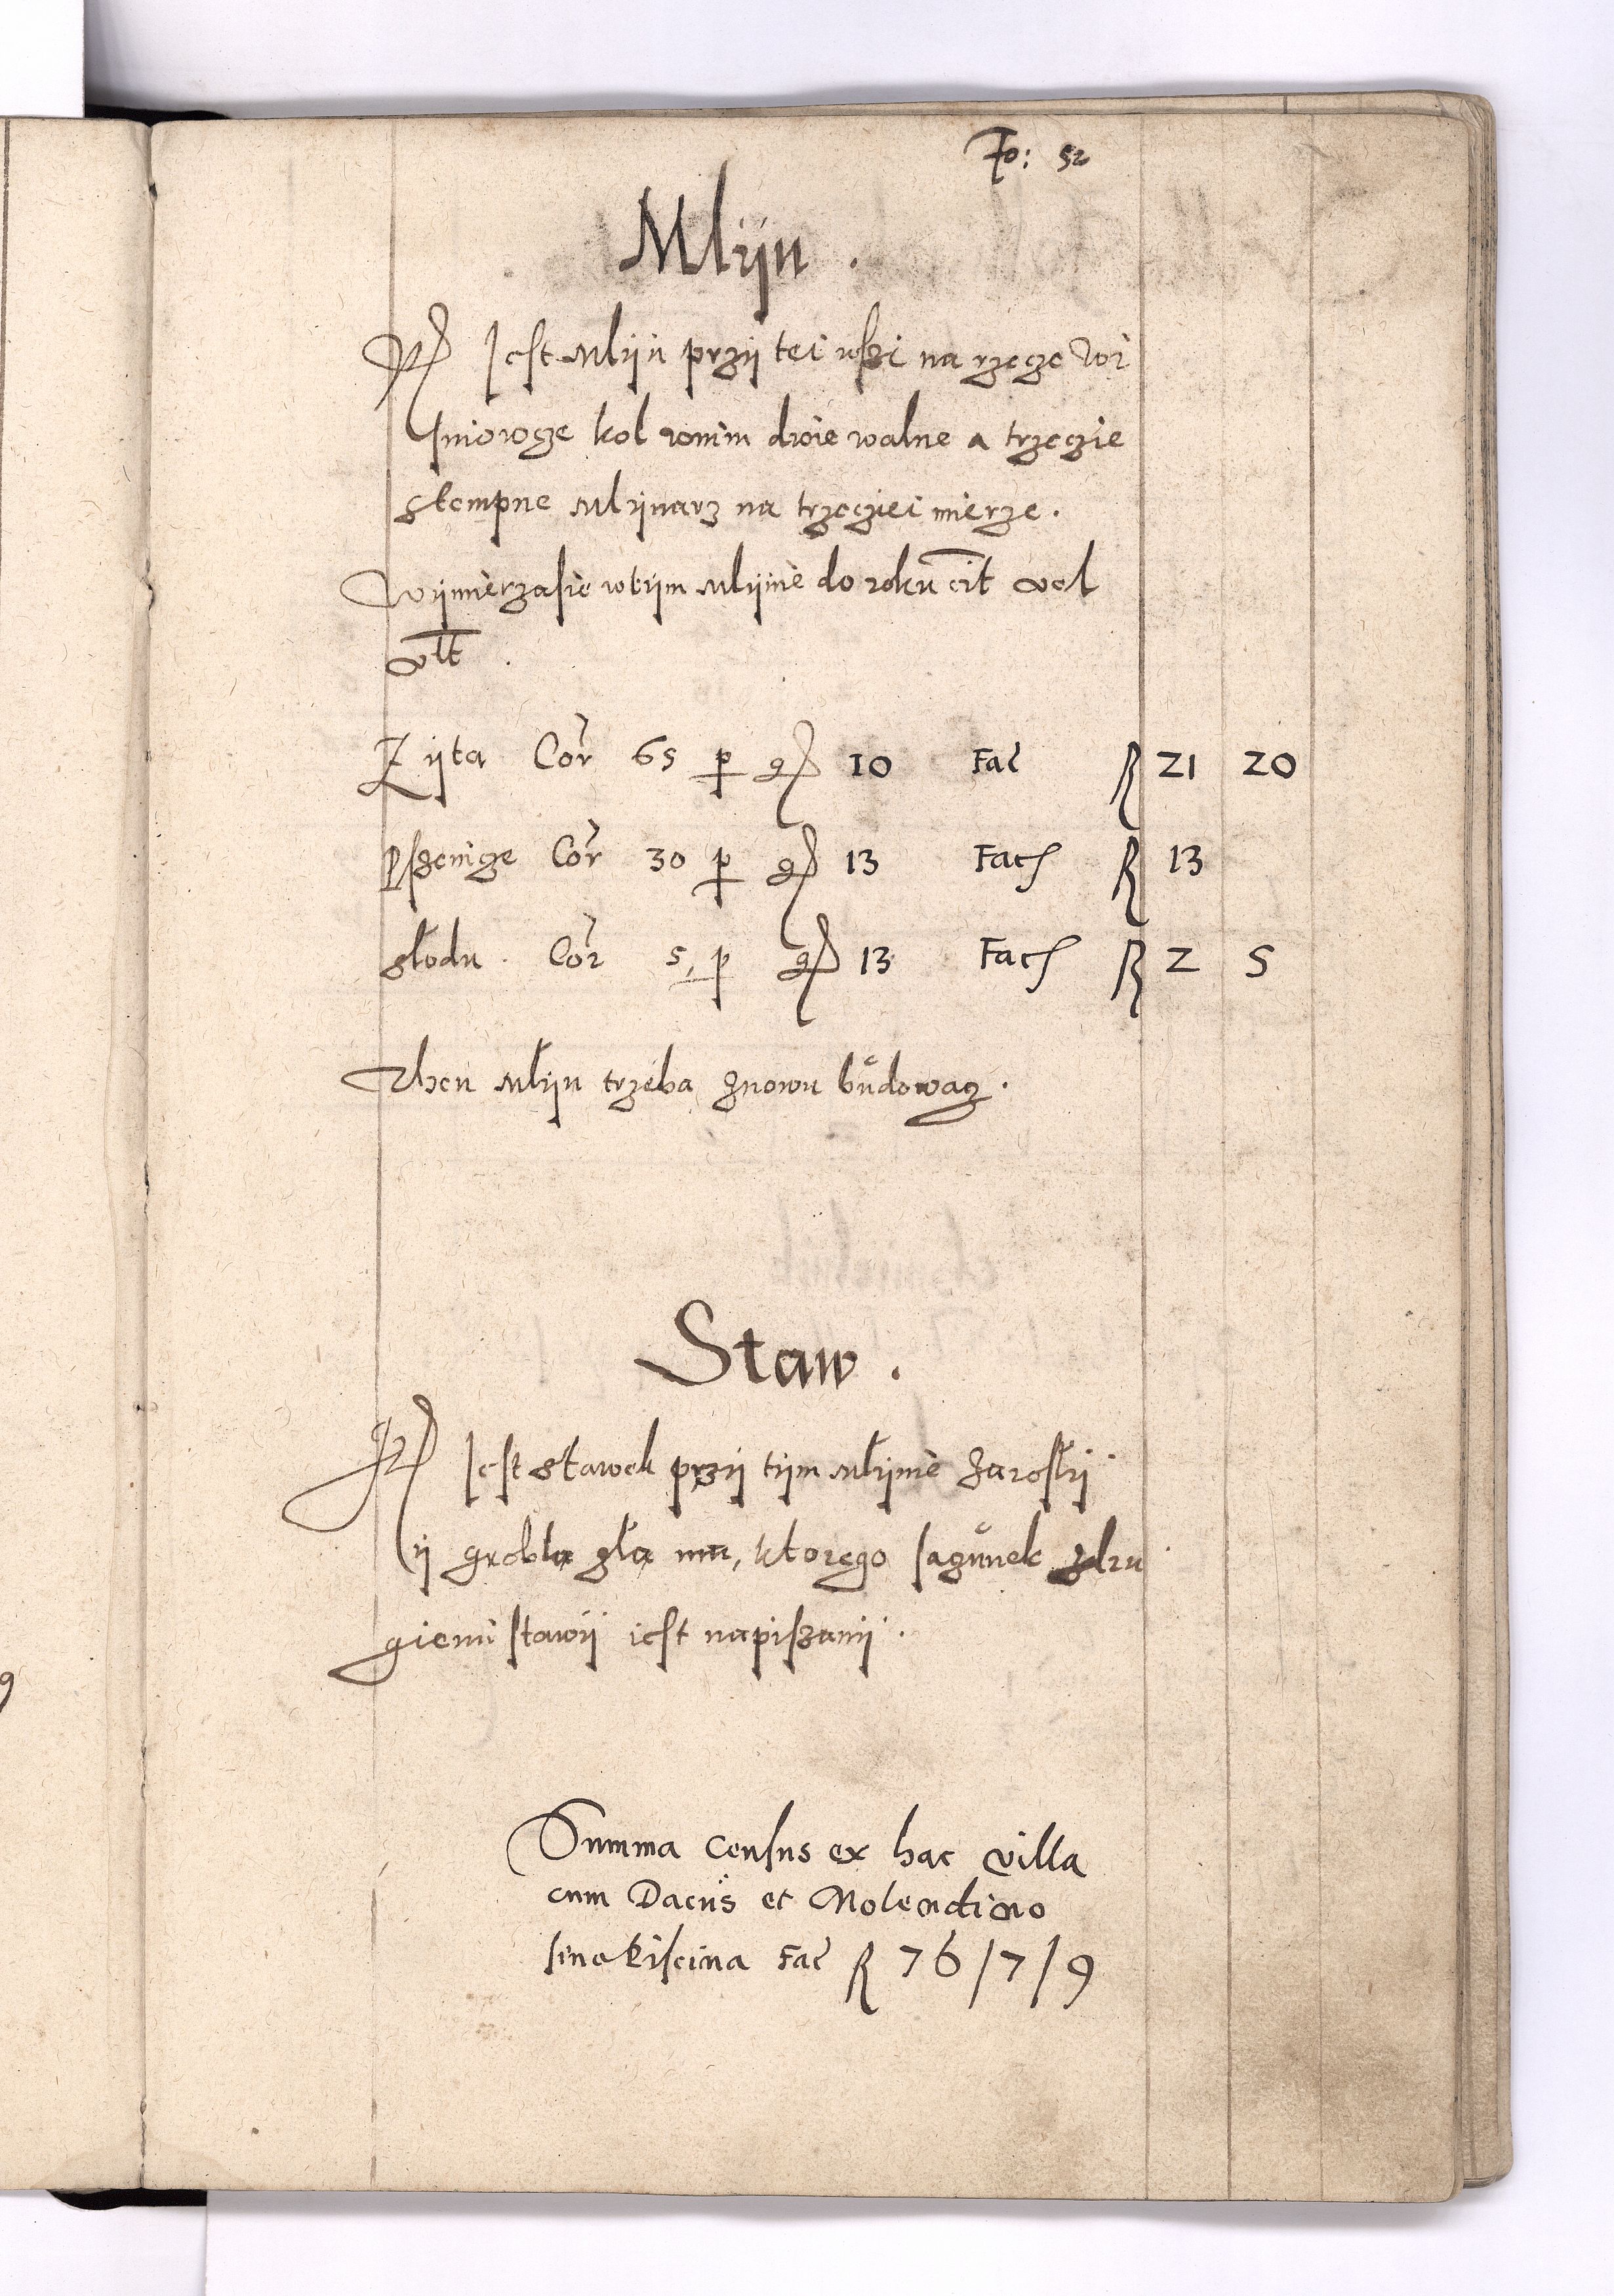 Fo: 52
Mlijn .
Jest Mlijn przij tei wszi na rzecze Wi
sniowcze kol wnim dwie walne a trzeczie
stempne Mlijnarz na trzecziei mierze .
Wijmierzasie wtijm Mlijnie do roku cit vel
vlt .
Zijta Cor 65 p gr 10 Fac R 21 20
Pszenicze Cor 30 p gr 13 Fach R 13
słodu . Cor 5, p gr 13 Fach R 2 5
Then Młijn trzeba znowu budowacz .
Staw .
Jest stawek przij tijm Młijnie zarosłij
ij grobla zła ma, ktorego sacunek zdru
giemi stawij iest napiszanij .
Summa Census ex hac villa
cum Dacijs et Molendino
sine Piscina Fac R 76/7/9
9